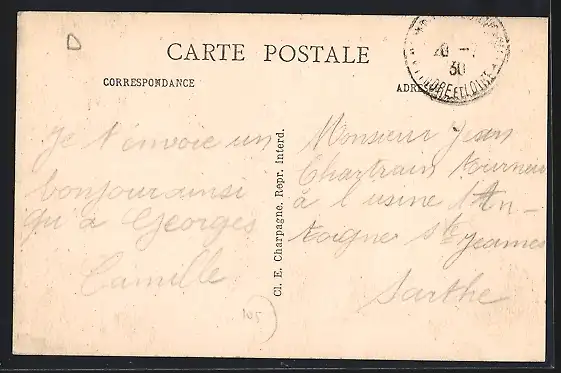 D
CARTE POSTALE
CORRESPONDANCE
ADRE
20 -
30
INDRE ET LOIRE
Je t'envoie un
bonjour ainsi
qu'a Georges
Camille
105
Cl. E. Charpagne. Repr. interd.
Monsieur Jean
Chartrain tourneur
à l usine d'An-
toigne Ste Jeames
Sarthe